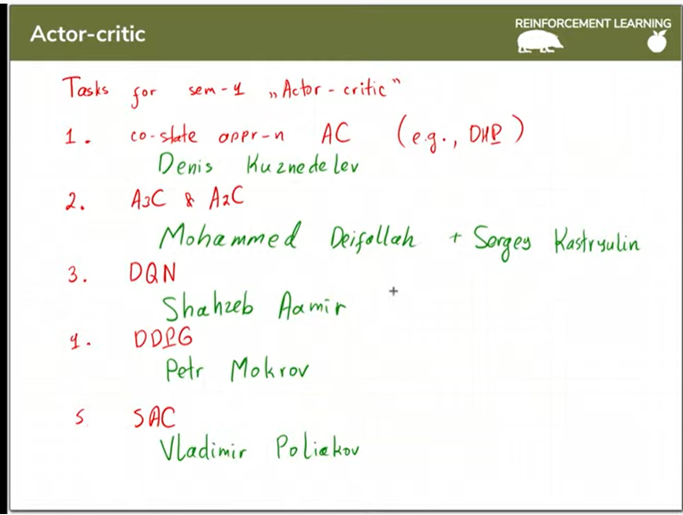 Actor-critic
REINFORCEMENT LEARNING
Tasks for sem-1 „Actor-critic"
1. co-state appr-n AC (e.g., DHP)
Denis Kuznedelev
2. A3C & A2C
Mohammed Deifallah + Sergey Kastryulin
3. DQN
Shahzeb Aamir
4. DDPG
Petr Mokrov
5 SAC
Vladimir Poliakov